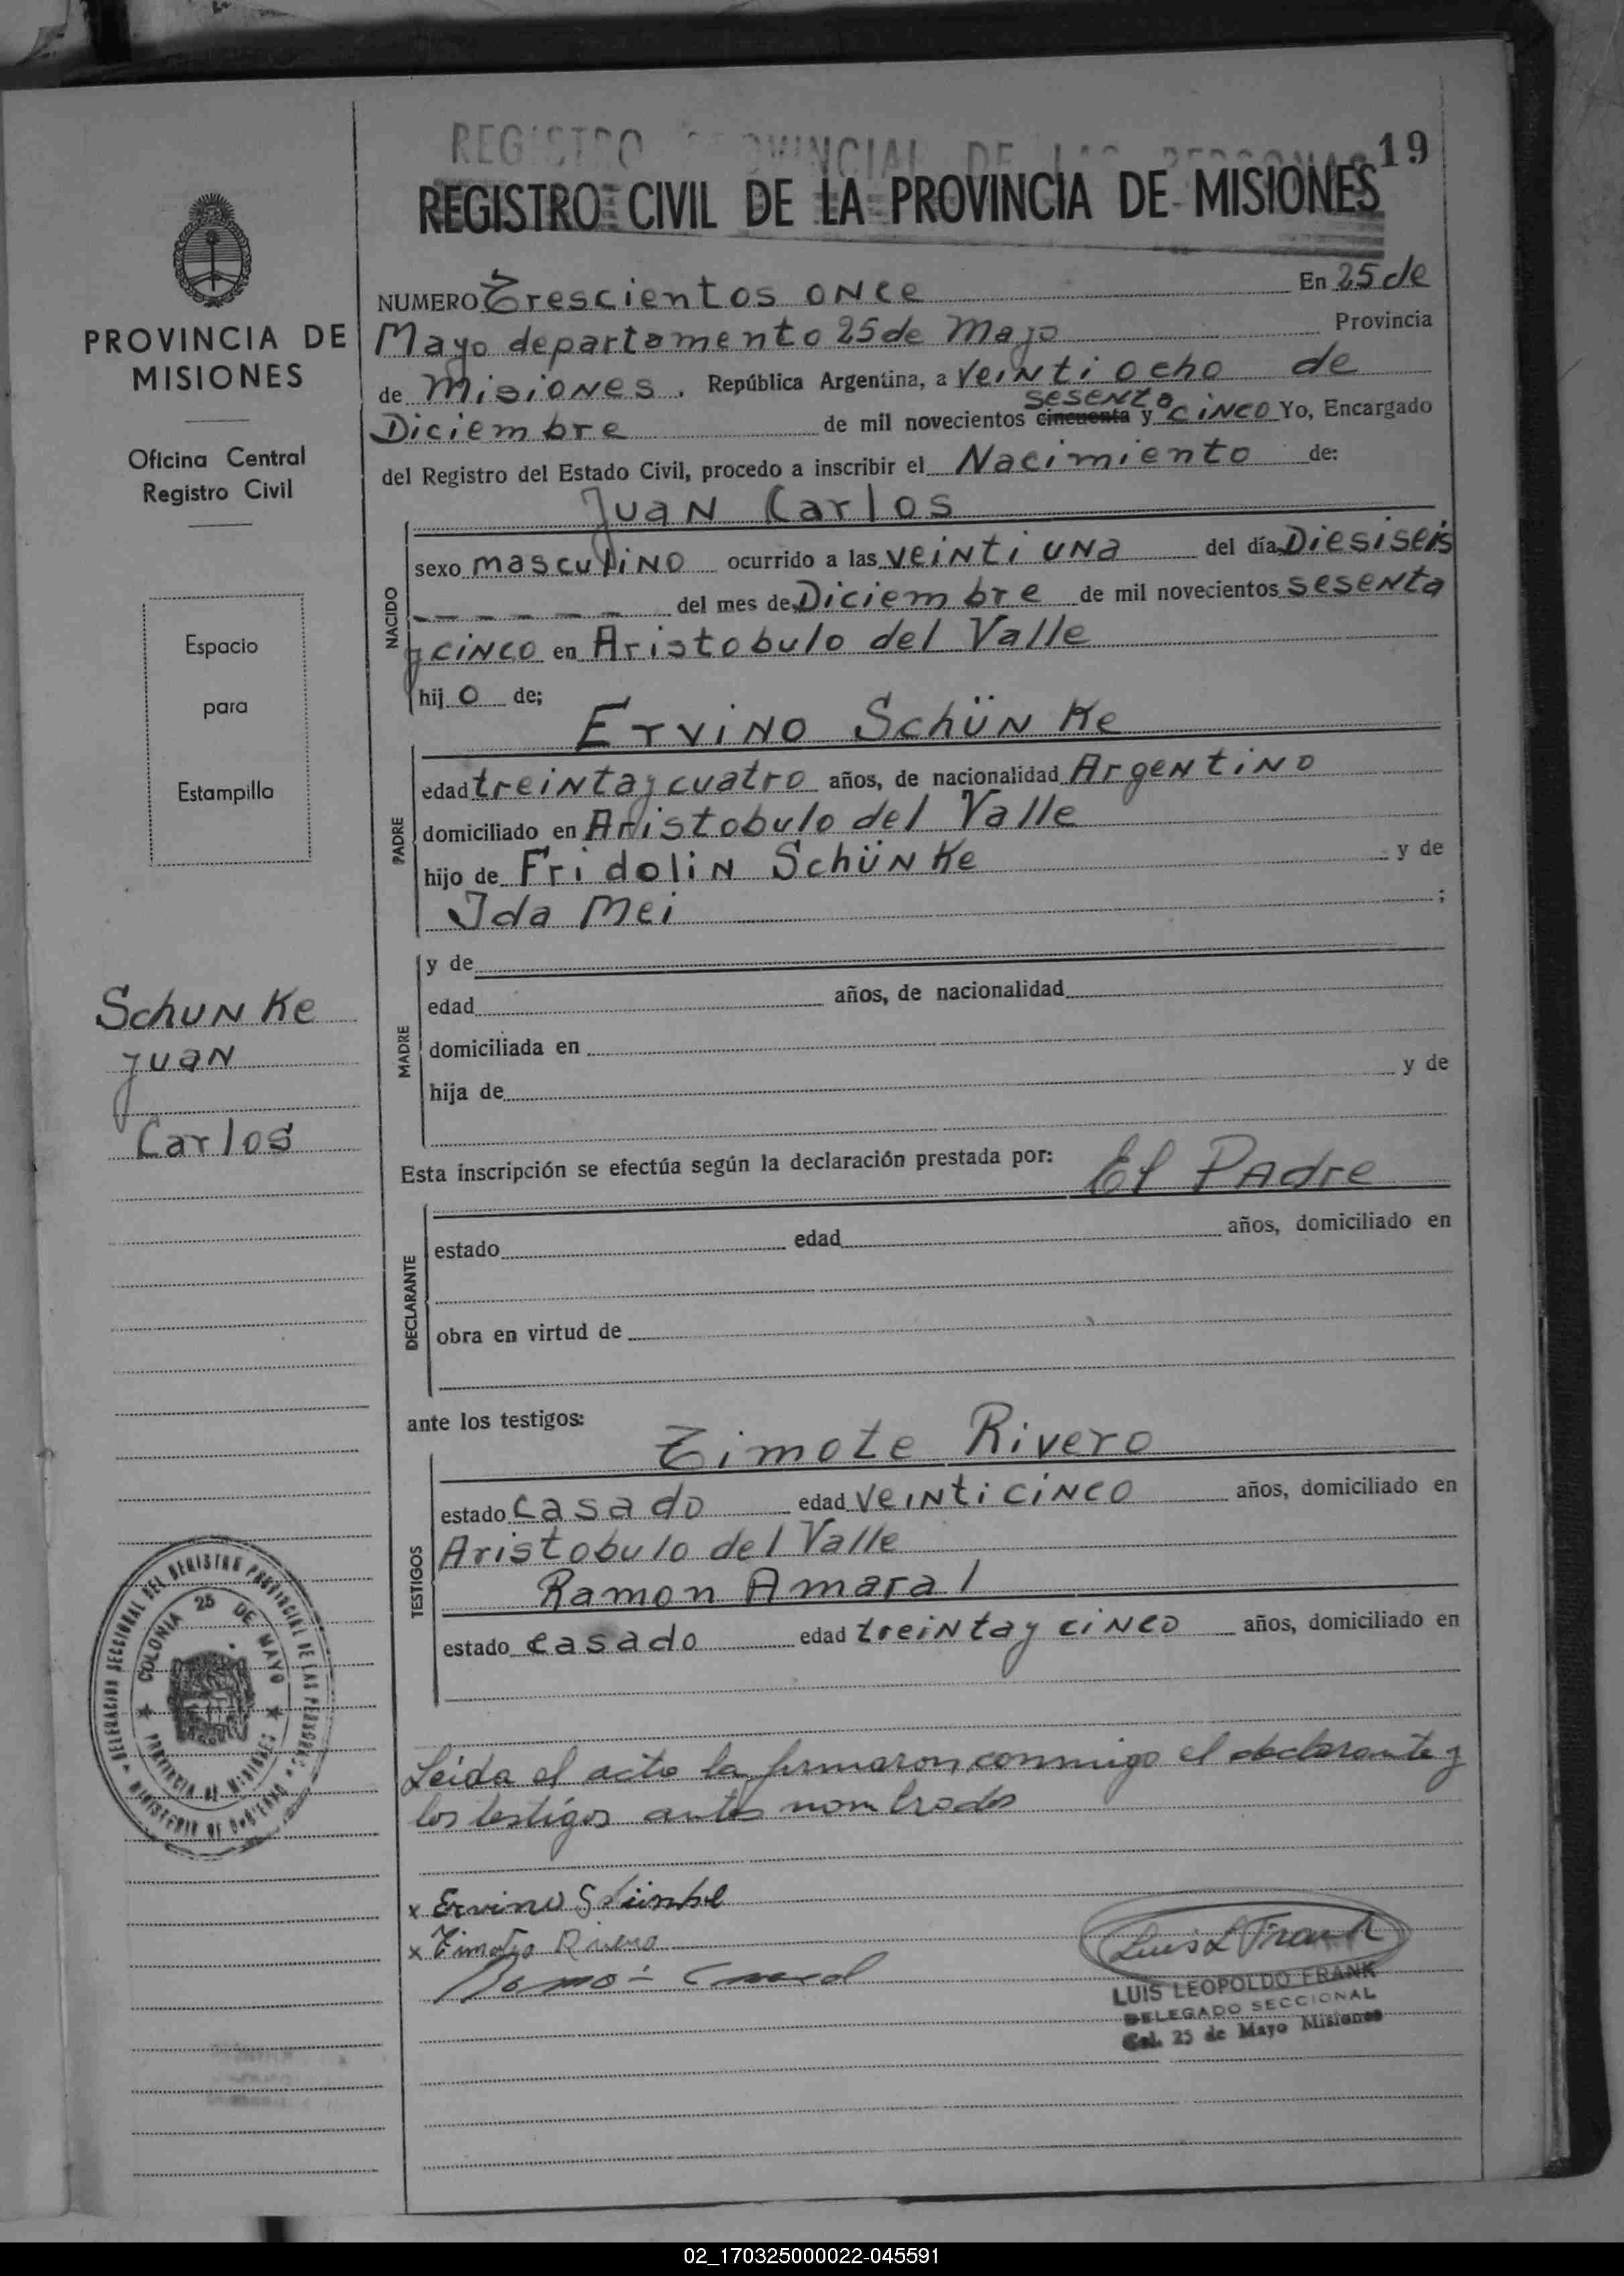 REGISTRO PROVINCIAL DE LAS PERSONAS
19
REGISTRO CIVIL DE LA PROVINCIA DE MISIONES
NUMERO Trescientos once En 25 de
Mayo departamento 25 de Mayo Provincia
de Misiones. República Argentina, a veinti ocho de
sesenta
Diciembre de mil novecientos cincuenta y cinco Yo, Encargado
del Registro del Estado Civil, procedo a inscribir el Nacimiento de:
Juan Carlos
NACIDO
sexo masculino ocurrido a las veinti una del día Diesiseis
— — — — — — del mes de Diciembre de mil novecientos sesenta
y cinco en Aristobulo del Valle
hij o de;
Ervino Schünke
PADRE
edad treinta y cuatro años, de nacionalidad Argentino
domiciliado en Aristobulo del Valle
hijo de Fridolin Schünke y de
Ida Mei ;
MADRE
y de
edad años, de nacionalidad
domiciliada en
hija de y de
Esta inscripción se efectúa según la declaración prestada por: El Padre
DECLARANTE
estado edad años, domiciliado en
obra en virtud de
ante los testigos:
Timote Rivero
TESTIGOS
estado Casado edad veinticinco años, domiciliado en
Aristobulo del Valle
Ramon Amaral
estado casado edad treinta y cinco años, domiciliado en
Leida el acta la firmaron conmigo el declarante y
los testigos antes nombrados
x Ervino Schünke
x Timoteo Rivero
Luis L Frank
LUIS LEOPOLDO FRANK
DELEGADO SECCIONAL
Col. 25 de Mayo Misiones
PROVINCIA DE
MISIONES
Oficina Central
Registro Civil
Espacio
para
Estampilla
Schunke
Juan
Carlos
DELEGACION SECCIONAL DEL REGISTRO PROVINCIAL DE LAS PERSONAS
COLONIA 25 DE MAYO
PROVINCIA DE MISIONES
MINISTERIO DE GOBIERNO
02_170325000022-045591